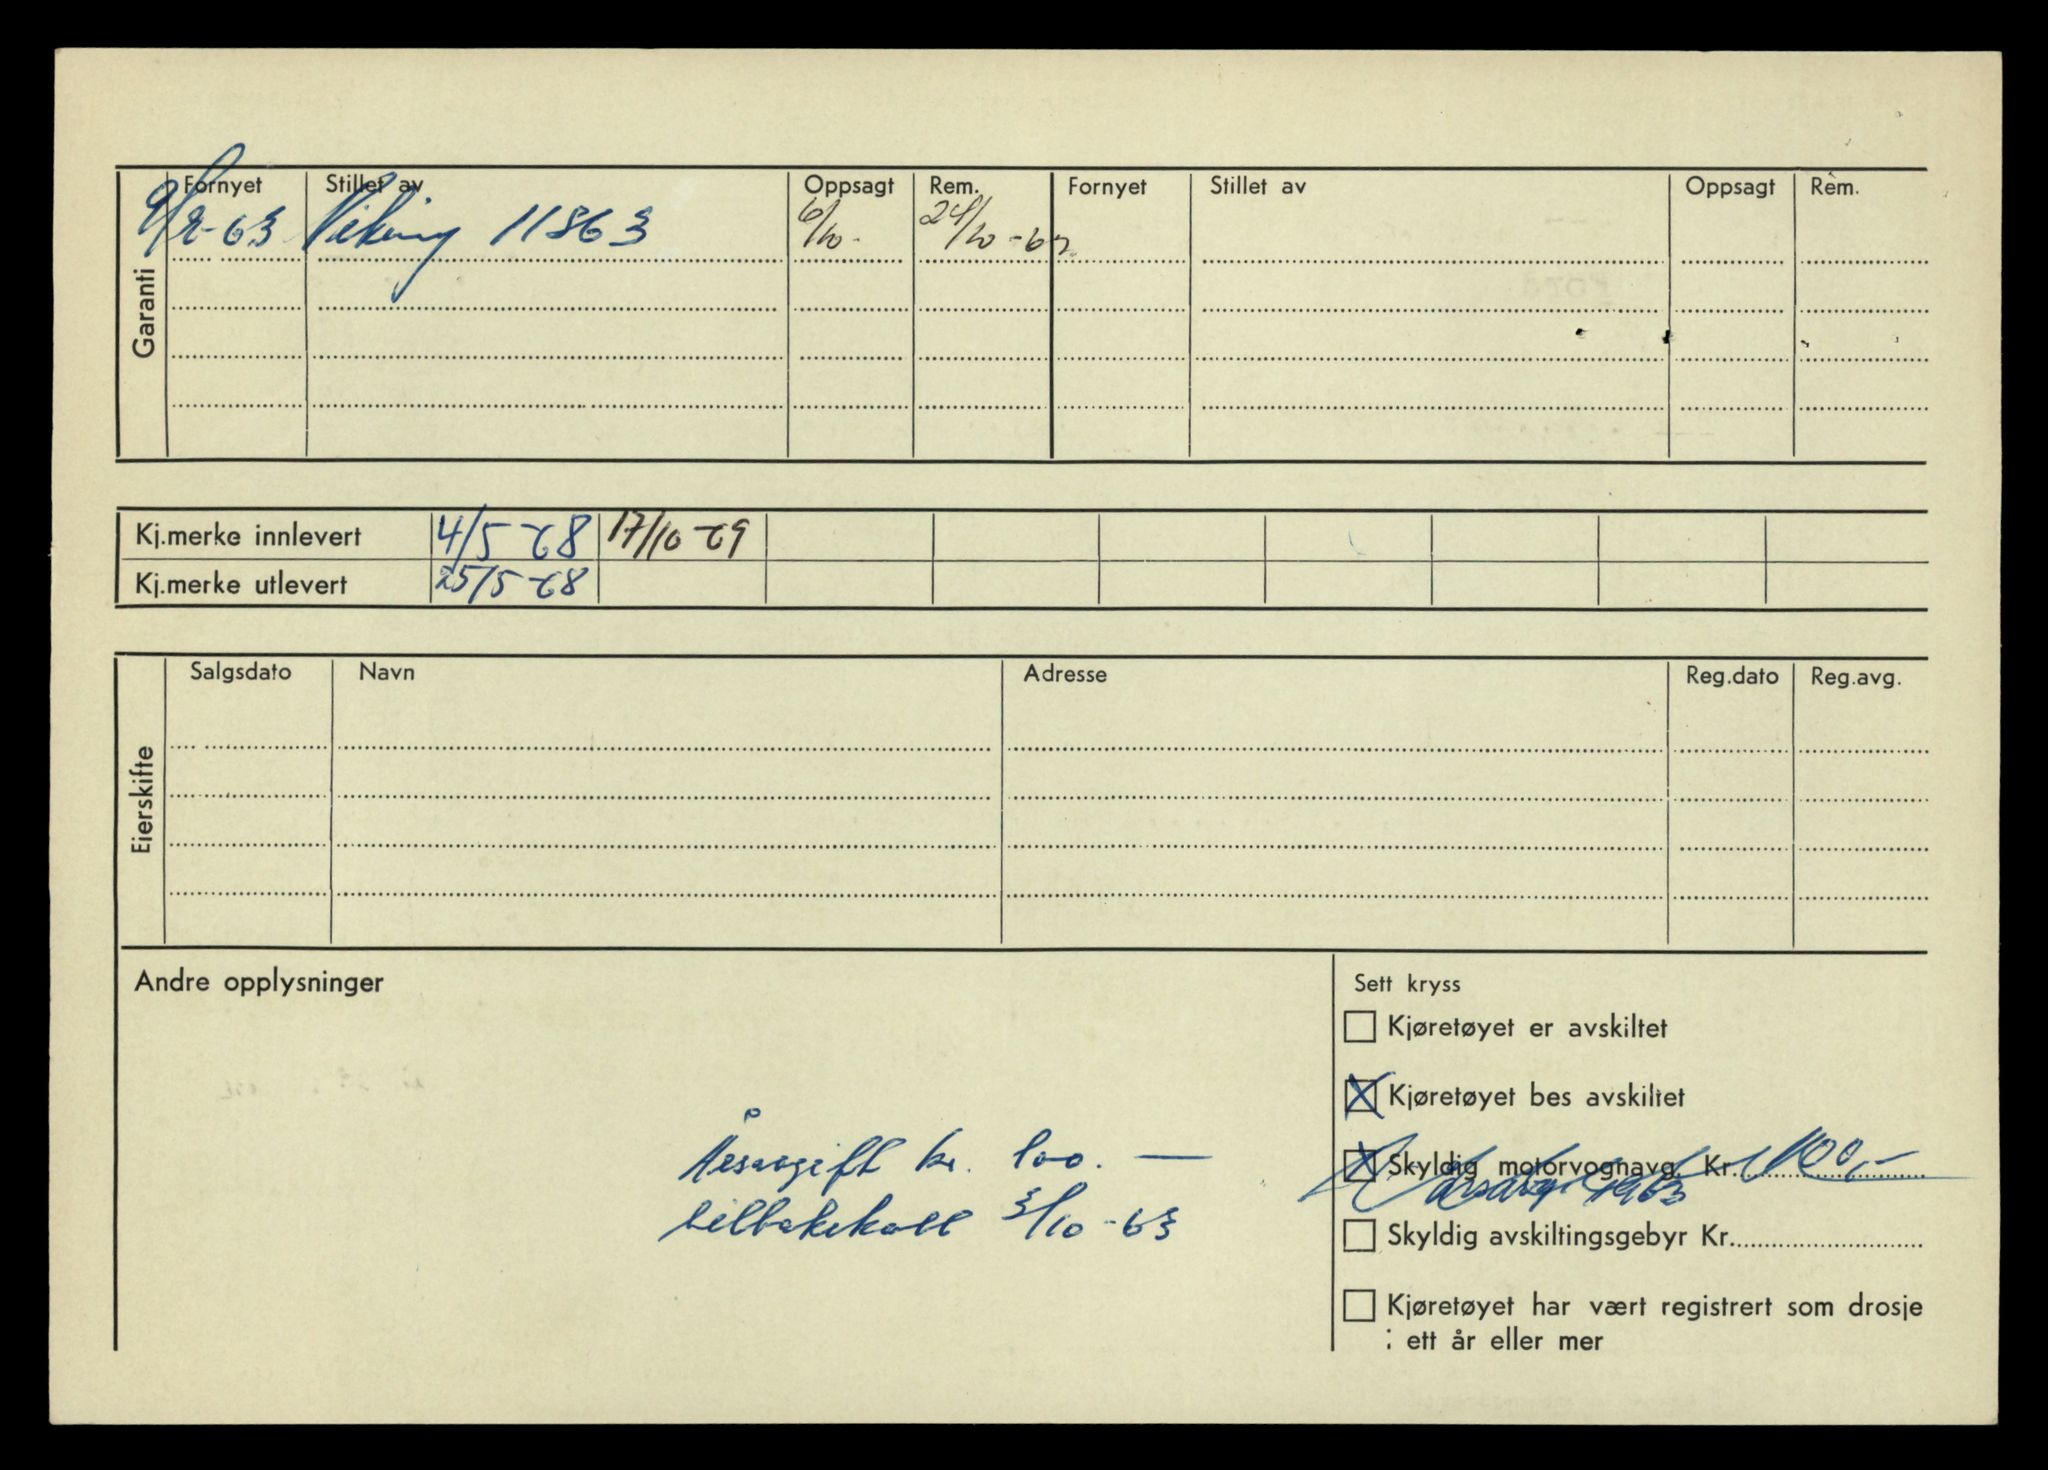 Garanti
Fornyet Stillet av Oppsagt Rem. Fornyet Stillet av Oppsagt Rem.
9/2-63 Viking 11863 6/10. 24/10-67.
Kj.merke innlevert 4/5-68 17/10-69
Kj.merke utlevert 25/5-68
Eierskifte
Salgsdato Navn Adresse Reg.dato Reg.avg.
Andre opplysninger
Årsavgift kr. 100. —
tilbakekall 3/10-63
Sett kryss
Kjøretøyet er avskiltet
X Kjøretøyet bes avskiltet
X Skyldig motorvognavg. Kr. 100,-
årsavg. 1963
Skyldig avskiltingsgebyr Kr.
Kjøretøyet har vært registrert som drosje
i ett år eller mer